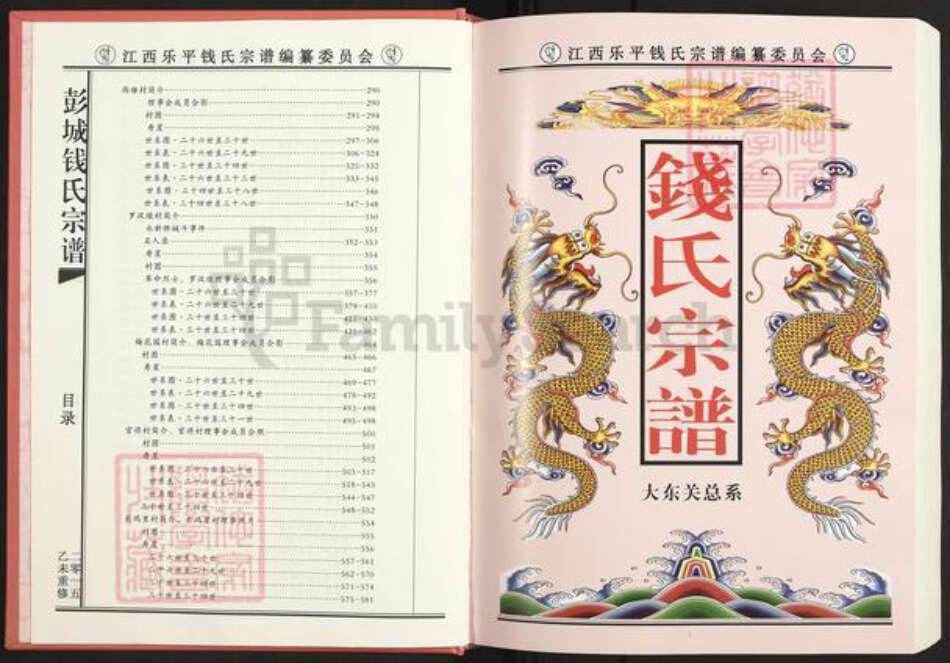 江西乐平钱氏宗谱编纂委员会
彭城钱氏宗谱
目录
二零一五
乙未重修
理事会成员合影 290
村图 291-294
寿星 295
世系图·二十六世至三十世 297-306
世系表·二十六世至二十九世 306-324
世系图·三十世至三十四世 325-332
世系表·三十世至三十三世 333-345
世系图·三十四世至三十八世 346
世系表·三十四世至三十八世 347-348
罗汉墩村简介 350
351
名人录 352-353
寿星 354
村图 355
革命烈士、罗汉墩理事会成员合影 356
世系图·二十六世至三十世 357-377
世系表·二十六世至二十九世 378-410
世系图·三十世至三十四世
世系表·三十世至三十四世
梅花园村简介、梅花园理事会成员合影 464
村图 465-466
寿星 467
世系图·二十六世至三十世 469-477
世系表·二十六世至二十九世 478-492
世系图·三十世至三十四世 493-498
世系表·三十世至三十一世 495-498
官得村简介、官得村理事会成员合照 500
村图 501
寿星 502
世系图·二十六世至三十世 503-517
世系表·二十六世至二十九世 518-543
世系图·三十世至三十四世 544-547
三十世至三十四世 548-552
554
村图 555
寿星 556
二十六世至三十世 557-561
二十六世至二十九世 562-570
三十世至三十四世 571-574
三十世至三十四世 575-581
江西乐平钱氏宗谱编纂委员会
錢氏宗譜
大东关总系
FamilySearch